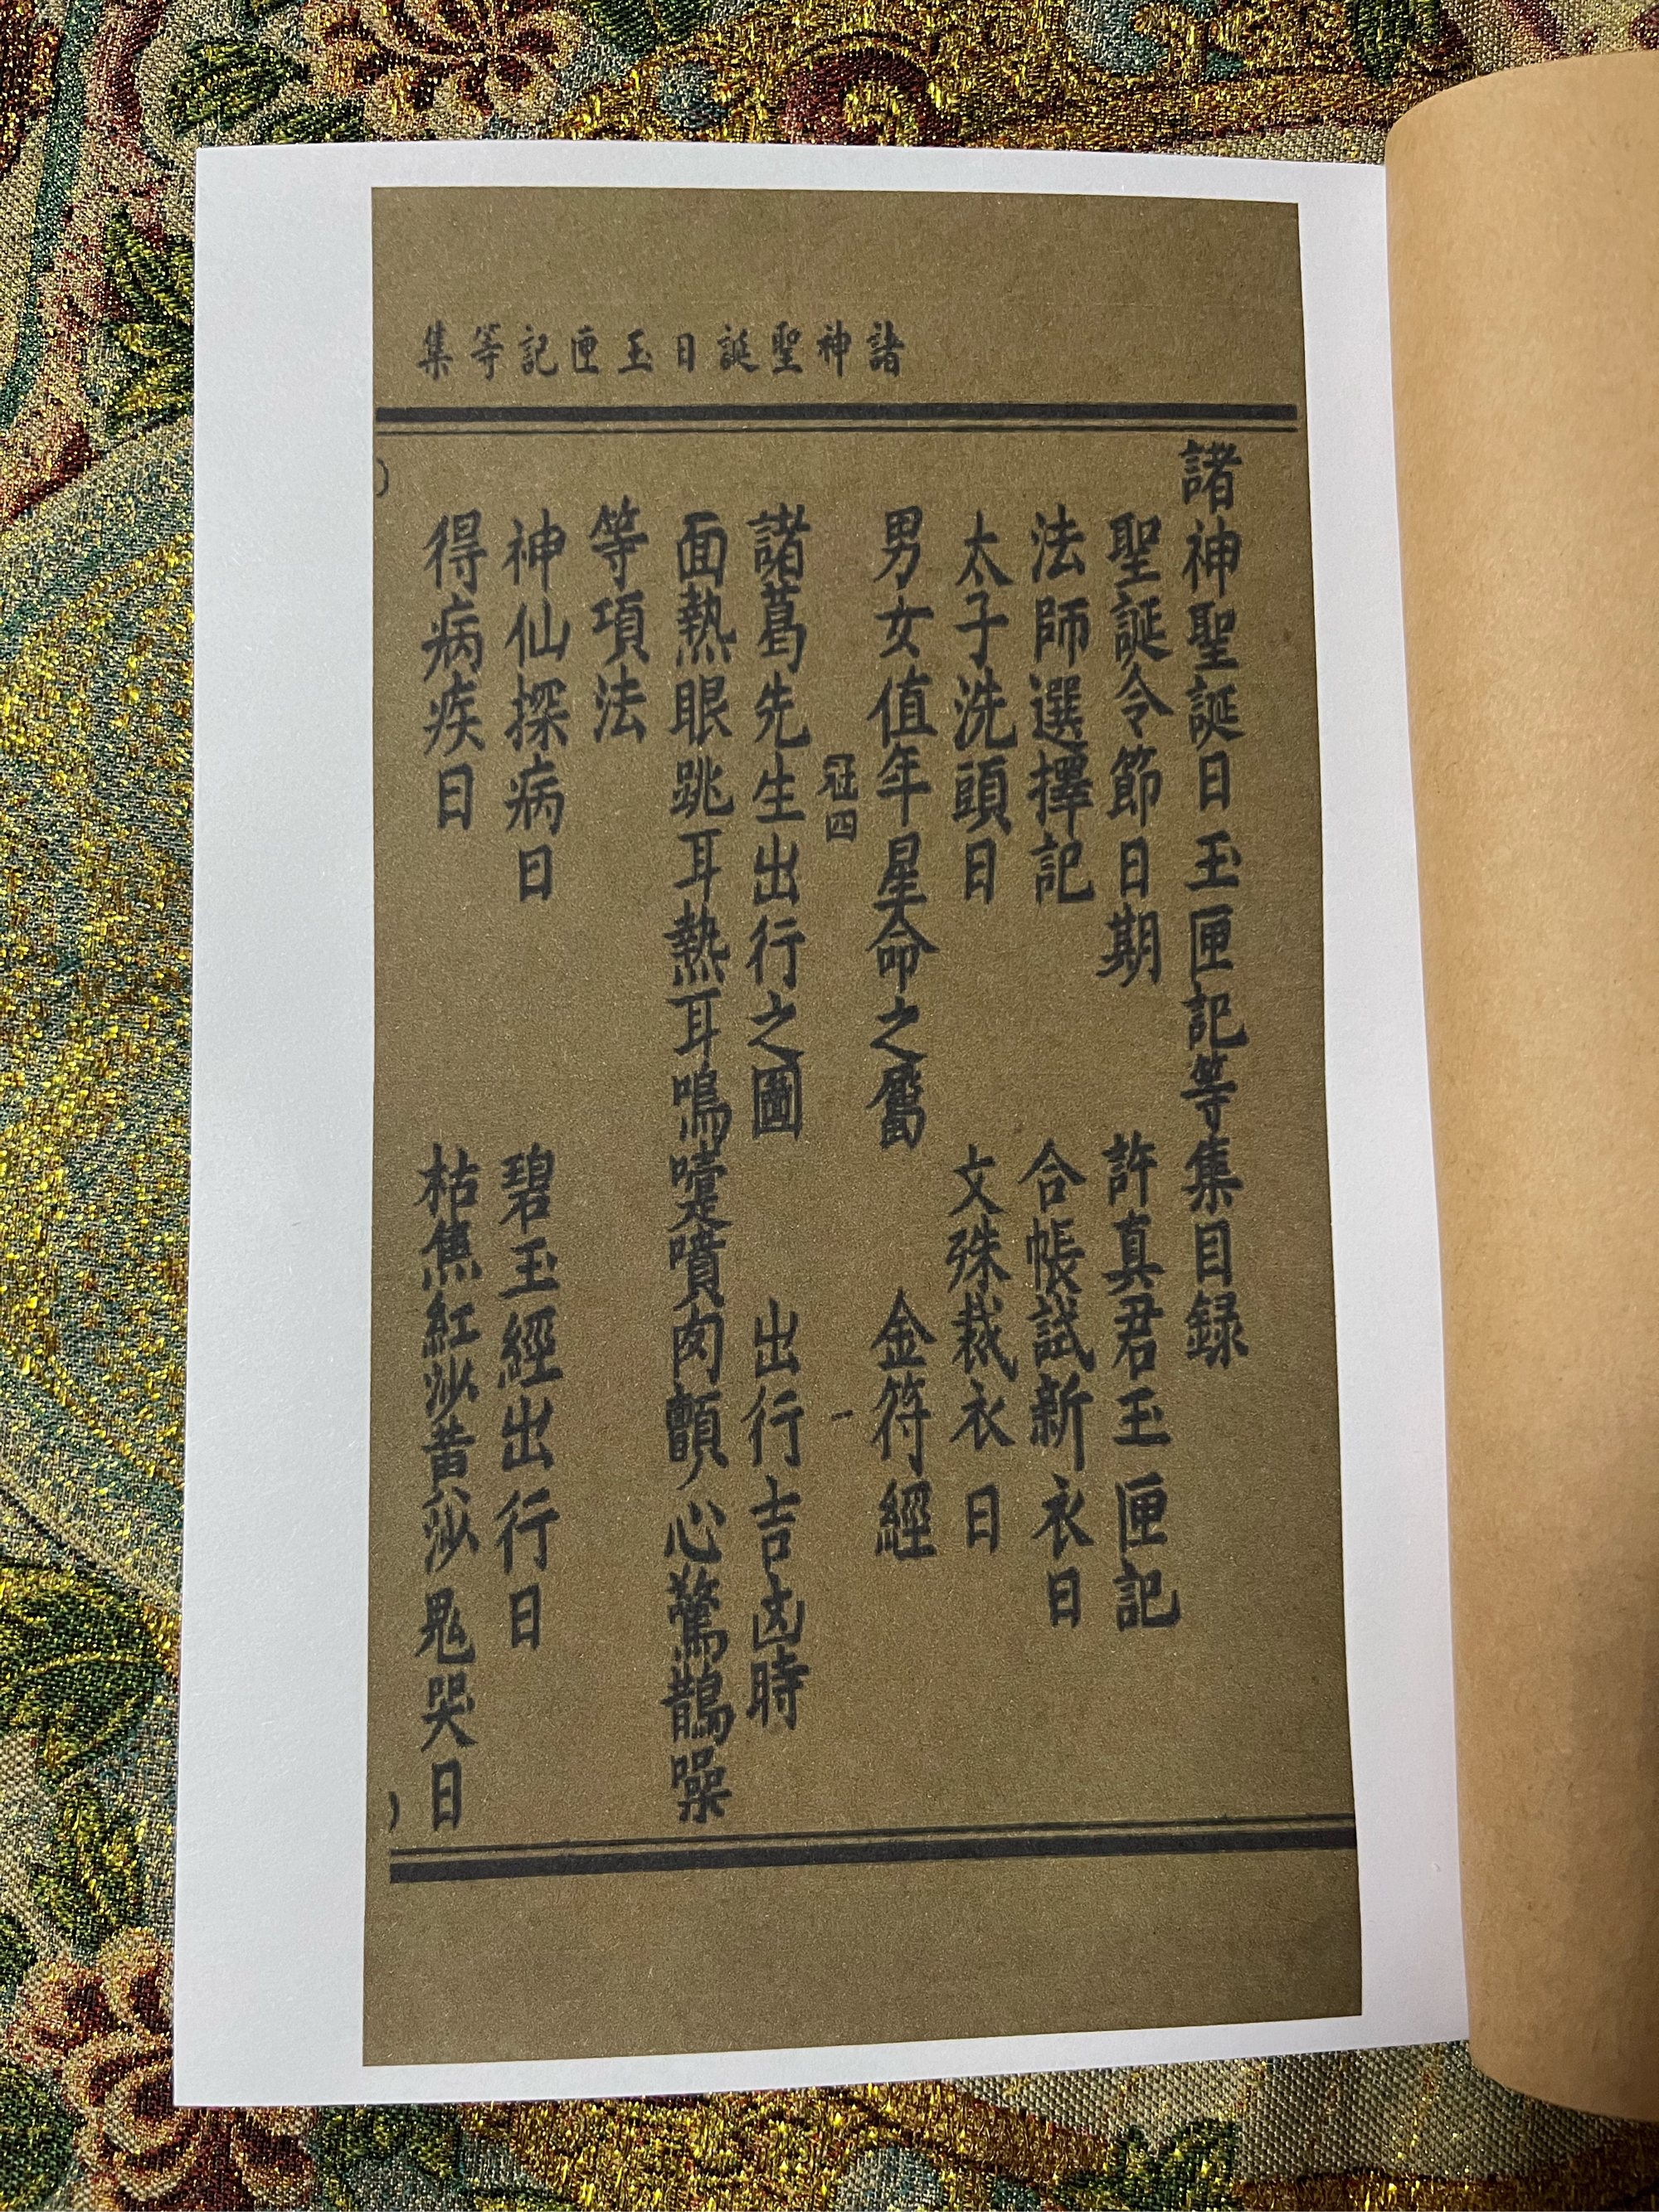 諸神聖誕日玉匣記等集
諸神聖誕日玉匣記等集目録
聖誕令節日期 許真君玉匣記
法師選擇記 合帳試新衣日
太子洗頭日 文殊裁衣日
男女值年星命之屬 金符經
冠四 一
諸葛先生出行之圖 出行吉凶時
面熱眼跳耳熱耳鳴嚏噴肉顫心驚鵲噪
等項法
神仙探病日 碧玉經出行日
得病疾日 枯焦紅沙黃沙鬼哭日